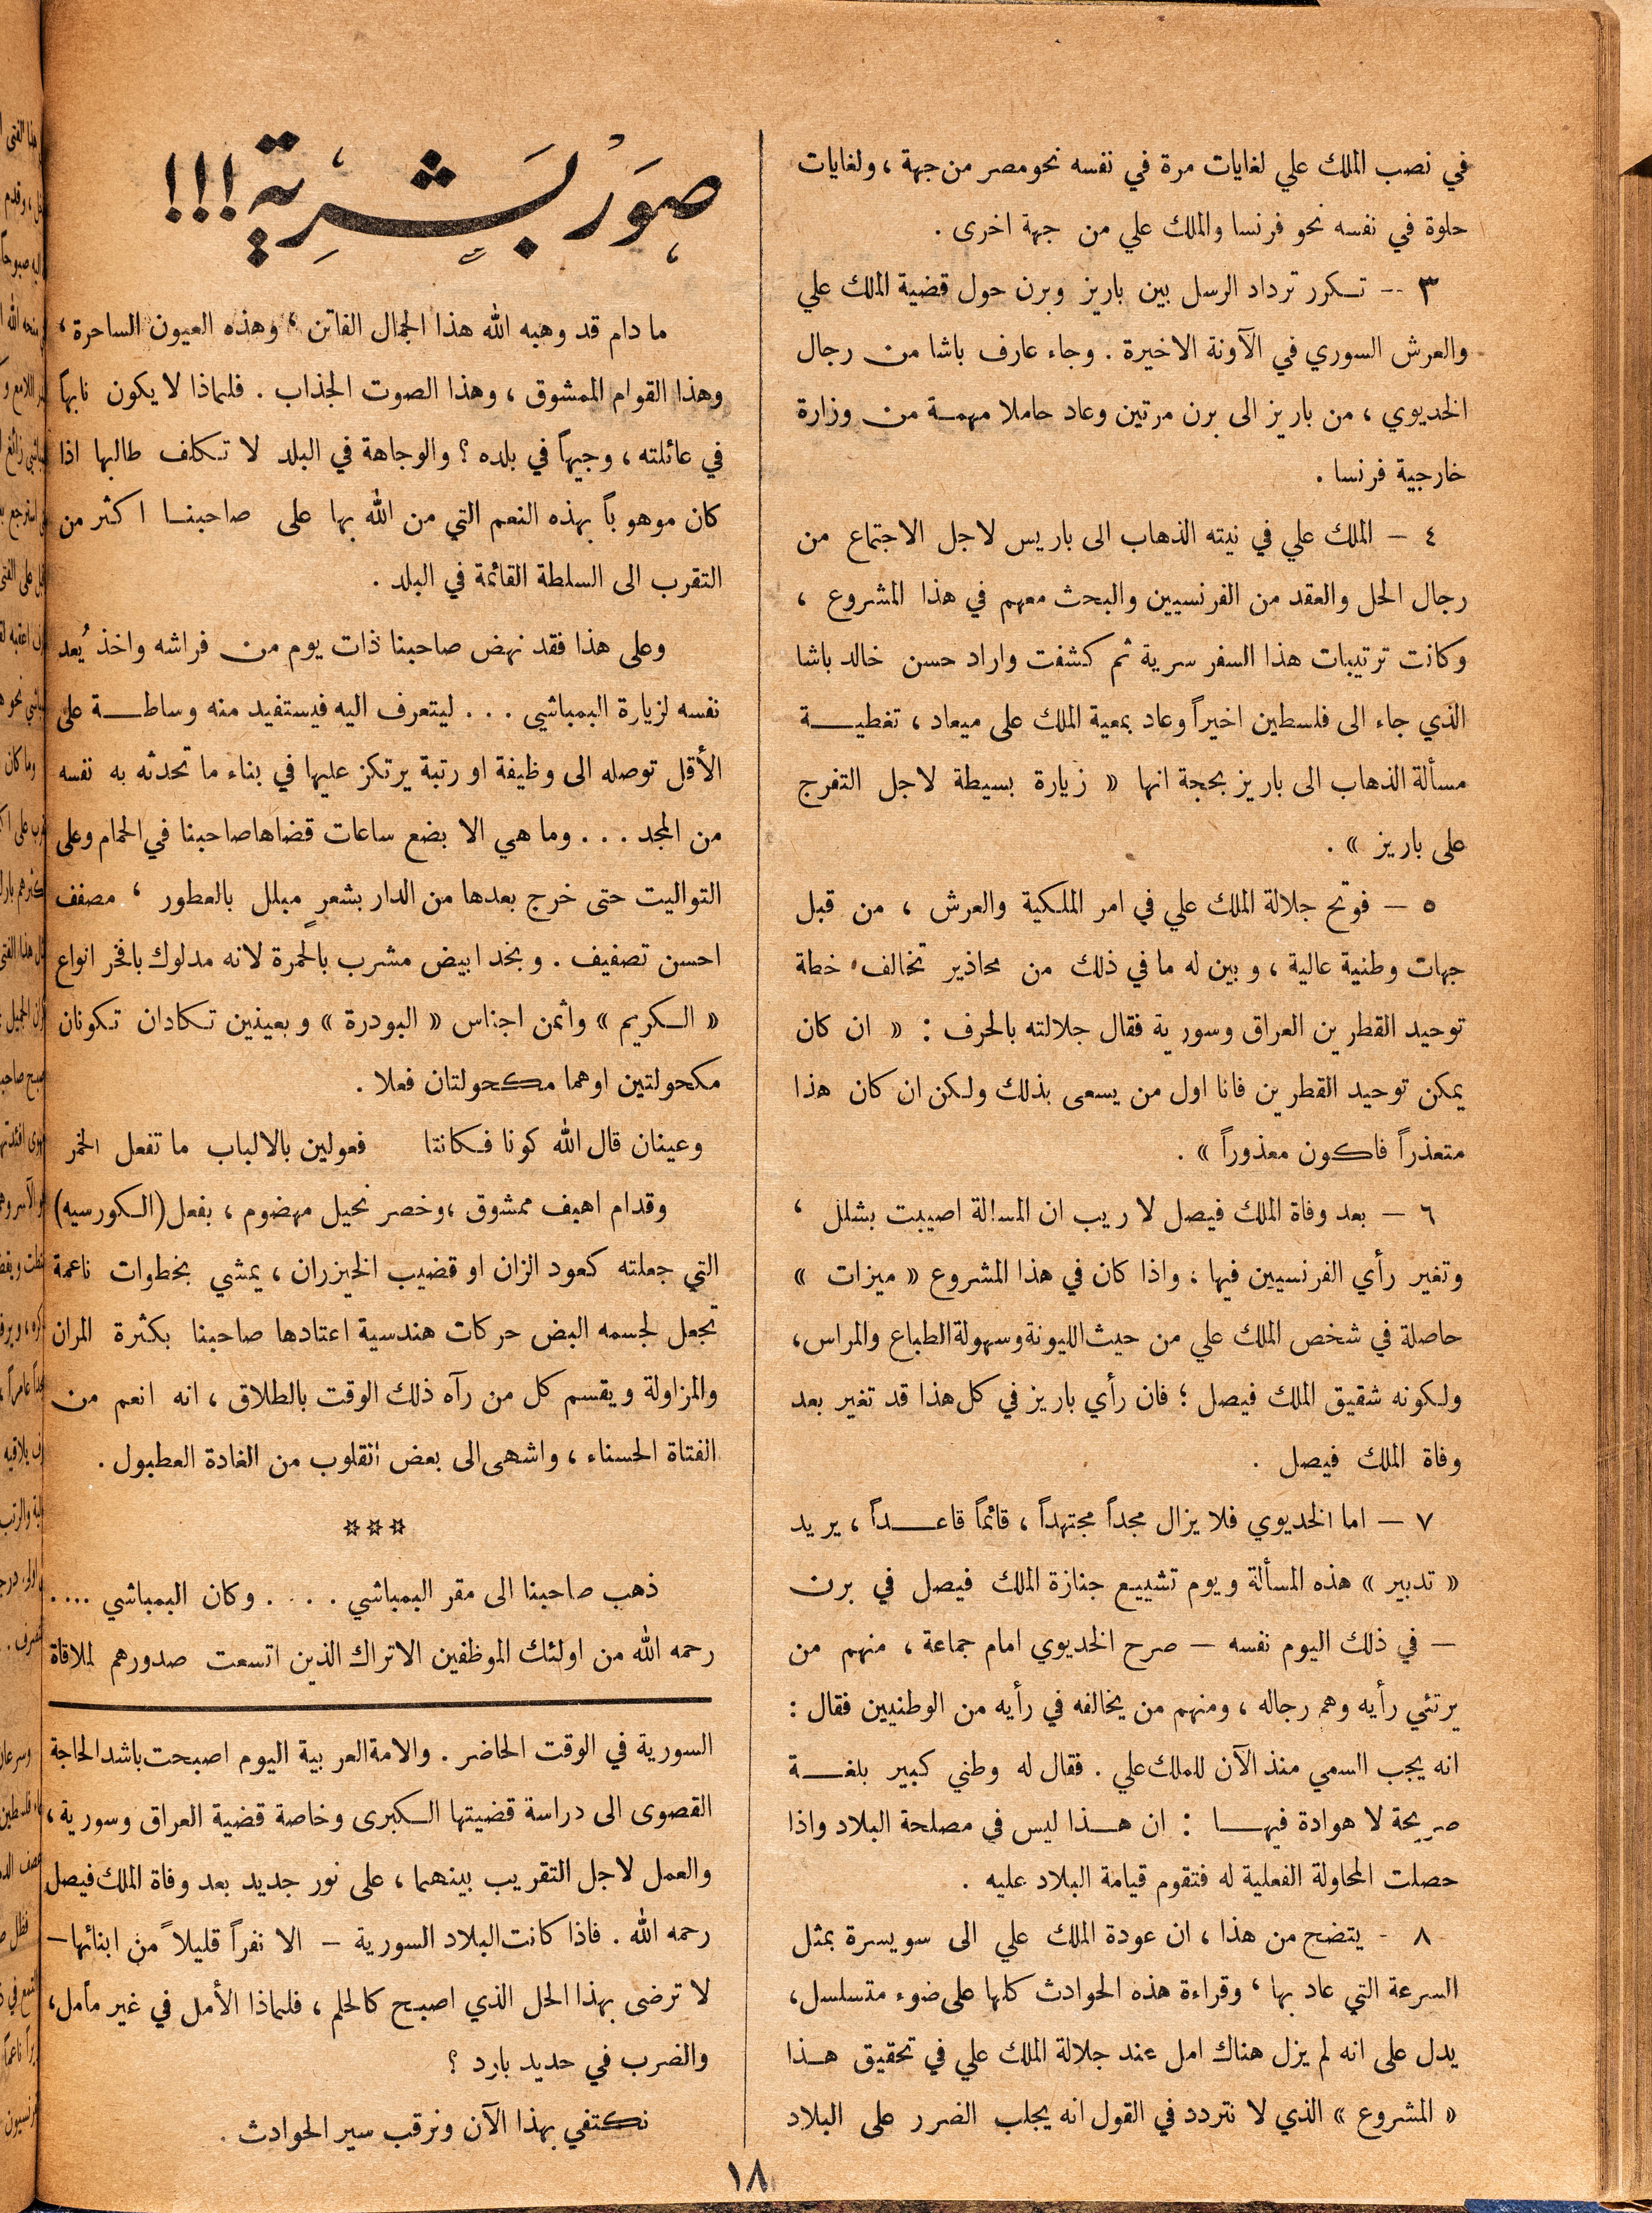 في نصب الملك علي لغايات مرة في نفسه نحو مصر من جهة ، ولغايات
حلوة في نفسه نحو فرنسا والملك علي من جهة اخرى .
٣ -- تكرر ترداد الرسل بين باريز وبرن حول قضية الملك علي
والعرش السوري في الآونة الاخيرة . وجاء عارف باشا من رجال
الخديوي ، من باريز الى برن مرتين وعاد حاملا مهمة من وزارة
خارجية فرنسا .
٤ — الملك علي في نيته الذهاب الى باريس لاجل الاجتماع من
رجال الحل والعقد من الفرنسيين والبحث معهم في هذا المشروع ،
وكانت ترتيبات هذا السفر سرية ثم كشفت واراد حسن خالد باشا
الذي جاء الى فلسطين اخيراً وعاد بمعية الملك على ميعاد ، تغطية
مسألة الذهاب الى باريز بحجة انها « زيارة بسيطة لاجل التفرج
على باريز » .
٥ — فوتح جلالة الملك علي في امر الملكية والعرش ، من قبل
جهات وطنية عالية ، وبين له ما في ذلك من محاذير تخالف خطة
توحيد القطرين العراق وسورية فقال جلالته بالحرف : « ان كان
يمكن توحيد القطرين فانا اول من يسعى بذلك ولكن ان كان هذا
متعذراً فاكون معذوراً » .
٦ — بعد وفاة الملك فيصل لا ريب ان المسالة اصيبت بشلل ،
وتغير رأي الفرنسيين فيها ، واذا كان في هذا المشروع « ميزات »
حاصلة في شخص الملك علي من حيث الليونة وسهولة الطباع والمراس ،
ولكونه شقيق الملك فيصل ؛ فان رأي باريز في كل هذا قد تغير بعد
وفاة الملك فيصل .
٧ — اما الخديوي فلا يزال مجداً مجتهداً ، قائماً قاعداً ، يريد
« تدبير » هذه المسألة ويوم تشييع جنازة الملك فيصل في برن
— في ذلك اليوم نفسه — صرح الخديوي امام جماعة ، منهم من
يرتئي رأيه وهم رجاله ، ومنهم من يخالفه في رأيه من الوطنيين فقال :
انه يجب السمي منذ الآن للملك علي . فقال له وطني كبير بلغة
صريحة لا هوادة فيها : ان هذا ليس في مصلحة البلاد واذا
حصلت المحاولة الفعلية له فتقوم قيامة البلاد عليه .
٨ - يتضح من هذا ، ان عودة الملك علي الى سويسرة بمثل
السرعة التي عاد بها ، وقراءة هذه الحوادث كلها على ضوء متسلسل ،
يدل على انه لم يزل هناك امل عند جلالة الملك علي في تحقيق هذا
« المشروع » الذي لا نتردد في القول انه يجلب الضرر على البلاد
صور بشرية !!!
ما دام قد وهبه الله هذا الجمال الفاتن ، وهذه العيون الساحرة ،
وهذا القوام الممشوق ، وهذا الصوت الجذاب . فلماذا لا يكون نابهاً
في عائلته ، وجيهاً في بلده ؟ والوجاهة في البلد لا تكلف طالبها اذا
كان موهوباً بهذه النعم التي من الله بها على صاحبنا اكثر من
التقرب الى السلطة القائمة في البلد .
وعلى هذا فقد نهض صاحبنا ذات يوم من فراشه واخذ يُعد
نفسه لزيارة البمباشي . . . ليتعرف اليه فيستفيد منه وساطة على
الأقل توصله الى وظيفة او رتبة يرتكز عليها في بناء ما تحدثه به نفسه
من المجد . . . وما هي الا بضع ساعات قضاها صاحبنا في الحمام وعلى
التواليت حتى خرج بعدها من الدار بشعرٍ مبلل بالعطور ، مصفف
احسن تصفيف . وبخد ابيض مشرب بالحمرة لانه مدلوك بافخر انواع
« الكريم » وأثمن اجناس « البودرة » وبعينين تكادان تكونان
مكحولتين اوهما مكحولتان فعلا .
وعينان قال الله كونا فكانتا    فعولين بالالباب ما تفعل الخمر
وقدام اهيف ممشوق ، وخصر نحيل مهضوم ، بفعل (الكورسيه)
التي جعلته كعود الزان او قضيب الخيزران ، يمشي بخطوات ناعمة
تجعل لجسمه البض حركات هندسية اعتادها صاحبنا بكثرة المران
والمزاولة ويقسم كل من رآه ذلك الوقت بالطلاق ، انه انعم من
الفتاة الحسناء ، واشهى الى بعض القلوب من الغادة العطبول .
☆☆☆
ذهب صاحبنا الى مقر البمباشي . . . . وكان البمباشي ....
رحمه الله من اولئك الموظفين الاتراك الذين اتسعت صدورهم لملاقاة
السورية في الوقت الحاضر . والامة العربية اليوم اصبحت باشد الحاجة
القصوى الى دراسة قضيتها الكبرى وخاصة قضية العراق وسورية ،
والعمل لاجل التقريب بينهما ، على نور جديد بعد وفاة الملك فيصل
رحمه الله . فاذا كانت البلاد السورية — الا نفراً قليلاً من ابنائها —
لا ترضى بهذا الحل الذي اصبح كالحلم ، فلماذا الأمل في غير مأمل ،
والضرب في حديد بارد ؟
نكتفي بهذا الآن ونرقب سير الحوادث .
١٨